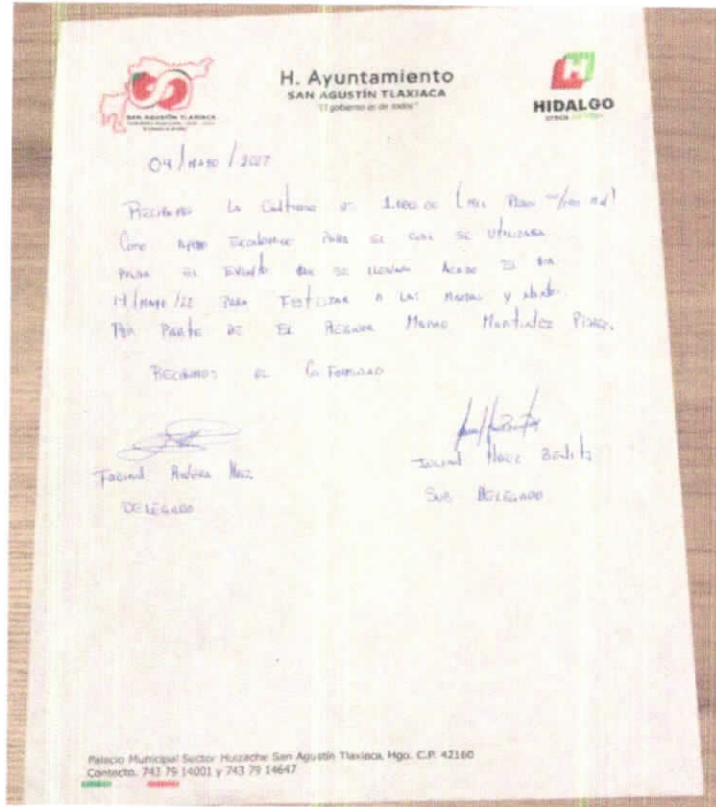 H. Ayuntamiento
SAN AGUSTÍN TLAXIACA
"El gobierno es de todos"
SAN AGUSTÍN TLAXIACA
HIDALGO
04/MAYO/2022
RECIBIMOS LA CANTIDAD DE 1.000.00 (MIL PESOS 00/100 M.N)
COMO APOYO ECONOMICO PARA EL CUAL SE UTILIZARA
PARA EL EVENTO QUE SE LLEVARA ACABO EL DIA
14/MAYO/22 PARA FESTEJAR A LAS MAMAS Y
POR PARTE DE EL REGIDOR MARTINEZ
RECIBIMOS DE CONFORMIDAD
JULIAN BENITEZ
DELEGADO
SUB DELEGADO
Palacio Municipal Sector Huizache San Agustín Tlaxiaca, Hgo. C.P. 42160
Contacto. 743 79 14001 y 743 79 14647